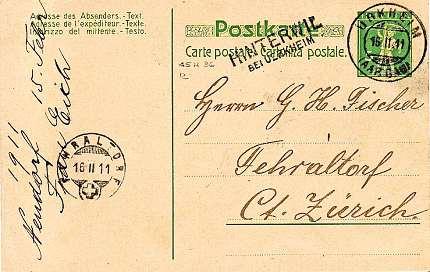 Adresse des Absenders. - Text.
Adresse de l'expéditeur. - Texte.
Indirizzo del mittente. - Testo.
Postkarte.
Carte postale. Cartolina postale.
HINTERWIL
BEI UERKHEIM
UERKHEIM
16.II.11
(AARGAU)
Herrn G. H. Fischer
Fehraltorf
Ct. Zürich.
1911
15. Feb
FEHRALTORF
16.II.11